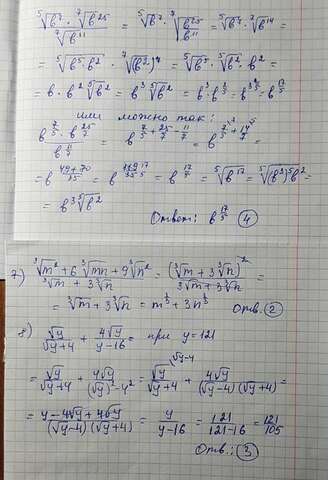 ⁵√b⁷ · ⁷√b²⁵ / ⁷√b¹¹ = ⁵√b⁷ · ⁷√(b²⁵/b¹¹) = ⁵√b⁷ · ⁷√b¹⁴ =
= ⁵√(b⁵b²) · ⁷√(b²)⁷ = ⁵√b⁵ · ⁵√b² · b² =
= b · b² ⁵√b² = b³ ⁵√b² = b³ · b^(2/5) = b^(3 2/5) = b^(17/5)
или можно так:
b^(7/5) · b^(25/7) / b^(11/7) = b^(7/5 + 25/7 − 11/7) = b^(7/5 + 14/7) =
= b^((49+70)/35) = b^(119/35) = b^(17/5) = ⁵√b¹⁷ = ⁵√((b³)⁵b²) =
= b³ ⁵√b²
Ответ: b^(17/5) (4)
7) (³√m² + 6 ³√mn + 9 ³√n²) / (³√m + 3 ³√n) = (³√m + 3 ³√n)² / (³√m + 3 ³√n) =
= ³√m + 3 ³√n = m^(1/3) + 3n^(1/3) Отв. (2)
8) √y/(√y+4) + 4√y/(y−16) = при y=121
= √y/(√y+4) + 4√y/((√y)²−4²) = √y/(√y+4) (√y−4 + 4√y/((√y−4)(√y+4)) =
= (y−4√y+4√y)/((√y−4)(√y+4)) = y/(y−16) = 121/(121−16) = 121/105
Отв.: (3)